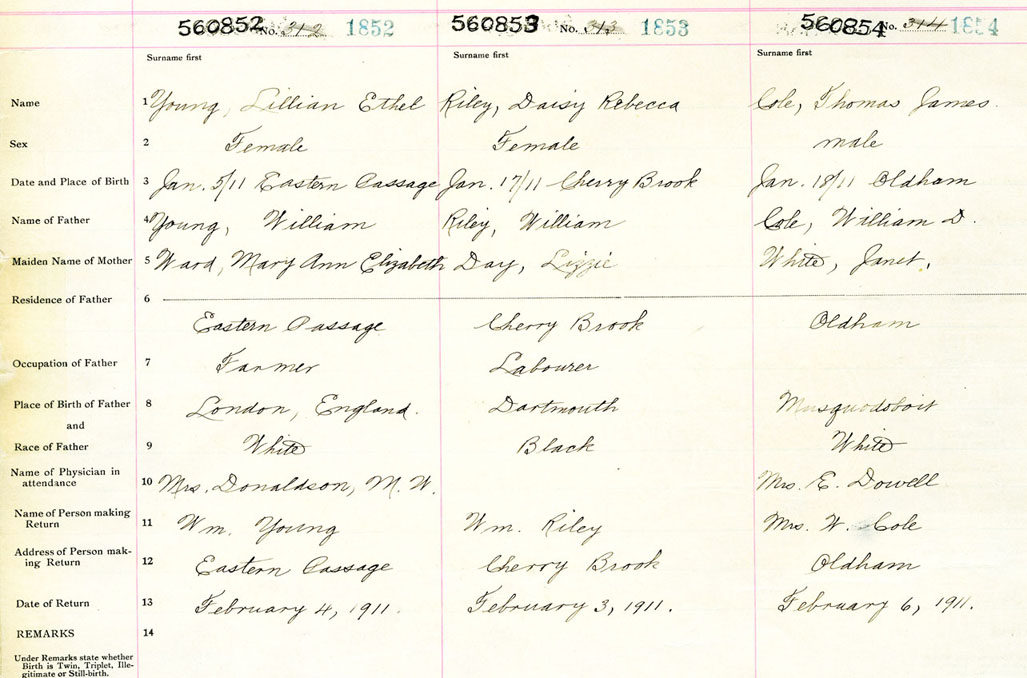 560852 No. 312 1852 560853 No. 313 1853 560854 No. 314 1854
Surname first Surname first Surname first
Name 1 Young, Lillian Ethel Riley, Daisy Rebecca Cole, Thomas James.
Sex 2 Female Female male
Date and Place of Birth 3 Jan. 5/11 Eastern Passage Jan. 17/11 Cherry Brook Jan. 18/11 Oldham
Name of Father 4 Young, William Riley, William Cole, William D.
Maiden Name of Mother 5 Ward, Mary Ann Elizabeth Day, Lizzie White, Janet.
Residence of Father 6
Eastern Passage Cherry Brook Oldham
Occupation of Father 7 Farmer Labourer
Place of Birth of Father 8 London, England. Dartmouth Musquodoboit
and
Race of Father 9 White Black White
Name of Physician in
attendance 10 Mrs. Donaldson, M. W. Mrs. E. Dowell
Name of Person making
Return 11 Wm. Young Wm. Riley Mrs. W. Cole
Address of Person mak-
ing Return 12 Eastern Passage Cherry Brook Oldham
Date of Return 13 February 4, 1911. February 3, 1911. February 6, 1911.
REMARKS 14
Under Remarks state whether
Birth is Twin, Triplet, Ille-
gitimate or Still-birth.